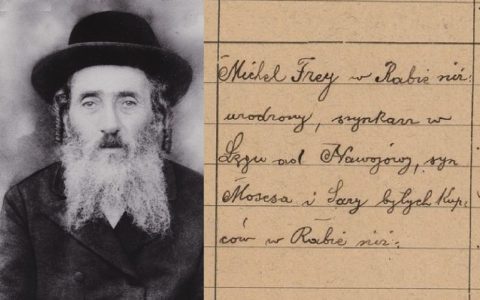 Michel Frey w Rabie niż.
urodzony, szynkarz w
Łęgu ad Nawojów, syn
Mosesa i Sary byłych kup-
ców w Rabie niż.